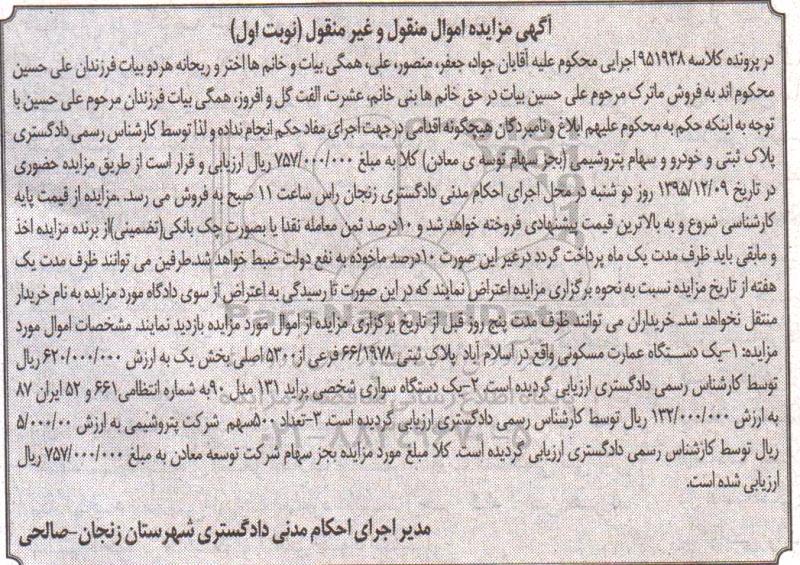 آگهی مزایده اموال منقول و غیر منقول (نوبت اول)
در پرونده کلاسه ۹۵۱۹۳۸ اجرایی محکوم علیه آقایان جواد، جعفر، منصور، علی، همگی بیات و خانم ها اختر و ریحانه هر دو بیات فرزندان علی حسین
محکوم اند به فروش ماترک مرحوم علی حسین بیات در حق خانم ها بنی خانم، عشرت، الفت گل و افروز، همگی بیات فرزندان مرحوم علی حسین با
توجه به اینکه حکم به محکوم علیهم ابلاغ و نامبردگان هیچگونه اقدامی در جهت اجرای مفاد حکم انجام نداده و لذا توسط کارشناس رسمی دادگستری
پلاک ثبتی و خودرو و سهام پتروشیمی (بجز سهام توسه ی معادن) کلا به مبلغ ۷۵۷/۰۰۰/۰۰۰ ریال ارزیابی و قرار است از طریق مزایده حضوری
در تاریخ ۱۳۹۵/۱۲/۰۹ روز دو شنبه در محل اجرای احکام مدنی دادگستری زنجان راس ساعت ۱۱ صبح به فروش می رسد. مزایده از قیمت پایه
کارشناسی شروع و به بالاترین قیمت پیشنهادی فروخته خواهد شد و ۱۰درصد ثمن معامله نقدا یا بصورت چک بانکی(تضمینی)از برنده مزایده اخذ
و مابقی باید ظرف مدت یک ماه پرداخت گردد درغیر این صورت ۱۰درصد ماخوذه به نفع دولت ضبط خواهد شد.طرفین می توانند ظرف مدت یک
هفته از تاریخ مزایده نسبت به نحوه برگزاری مزایده اعتراض نمایند که در این صورت تا رسیدگی به اعتراض از سوی دادگاه مورد مزایده به نام خریدار
منتقل نخواهد شد. خریداران می توانند ظرف مدت پنج روز قبل از تاریخ برگزاری مزایده از اموال مورد مزایده بازدید نمایند. مشخصات اموال مورد
مزایده: ۱-یک دستگاه عمارت مسکونی واقع در اسلام آباد پلاک ثبتی ۶۶/۱۹۷۸ فرعی از۵۳۰۰ اصلی بخش یک به ارزش ۶۲۰/۰۰۰/۰۰۰ ریال
توسط کارشناس رسمی دادگستری ارزیابی گردیده است. ۲-یک دستگاه سواری شخصی پراید ۱۳۱ مدل ۹۰به شماره انتظامی۶۶۱و ۵۲ ایران ۸۷
به ارزش ۱۳۲/۰۰۰/۰۰۰ ریال توسط کارشناس رسمی دادگستری ارزیابی گردیده است. ۳-تعداد ۵۰۰سهم شرکت پتروشیمی به ارزش ۵/۰۰۰/۰۰
ریال توسط کارشناس رسمی دادگستری ارزیابی گردیده است. کلا مبلغ مورد مزایده بجز سهام شرکت توسعه معادن به مبلغ ۷۵۷/۰۰۰/۰۰۰ ریال
ارزیابی شده است.
مدیر اجرای احکام مدنی دادگستری شهرستان زنجان-صالحی
ParsNamadData